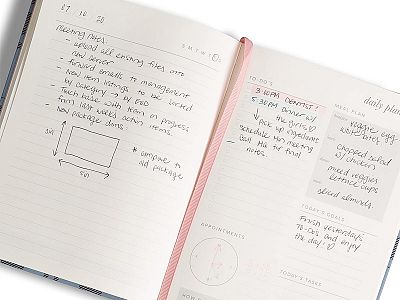 07 18 20
S M T W T F S
Meeting notes:
- upload all existing files into
new server
- forward emails to management
- New item listings to be sorted
by category → by EOD
- Touch base with team on progress
from last week's action items.
- New package dims:
* compare to
old package
TO-DO'S
3:10PM DENTIST!
5:30PM Dinner w/
the girls ♡
Pick up ingredients
Schedule meeting
- Call for final
notes.
APPOINTMENTS
daily plan
MEAL PLAN
veggie egg
white bites
chopped salad
w/ chicken
mixed veggies
lettuce cups
sliced almonds.
TODAY'S GOALS
Finish yesterdays
TO-DOs and enjoy
the day! ♡
TODAY'S TASKS
HOW